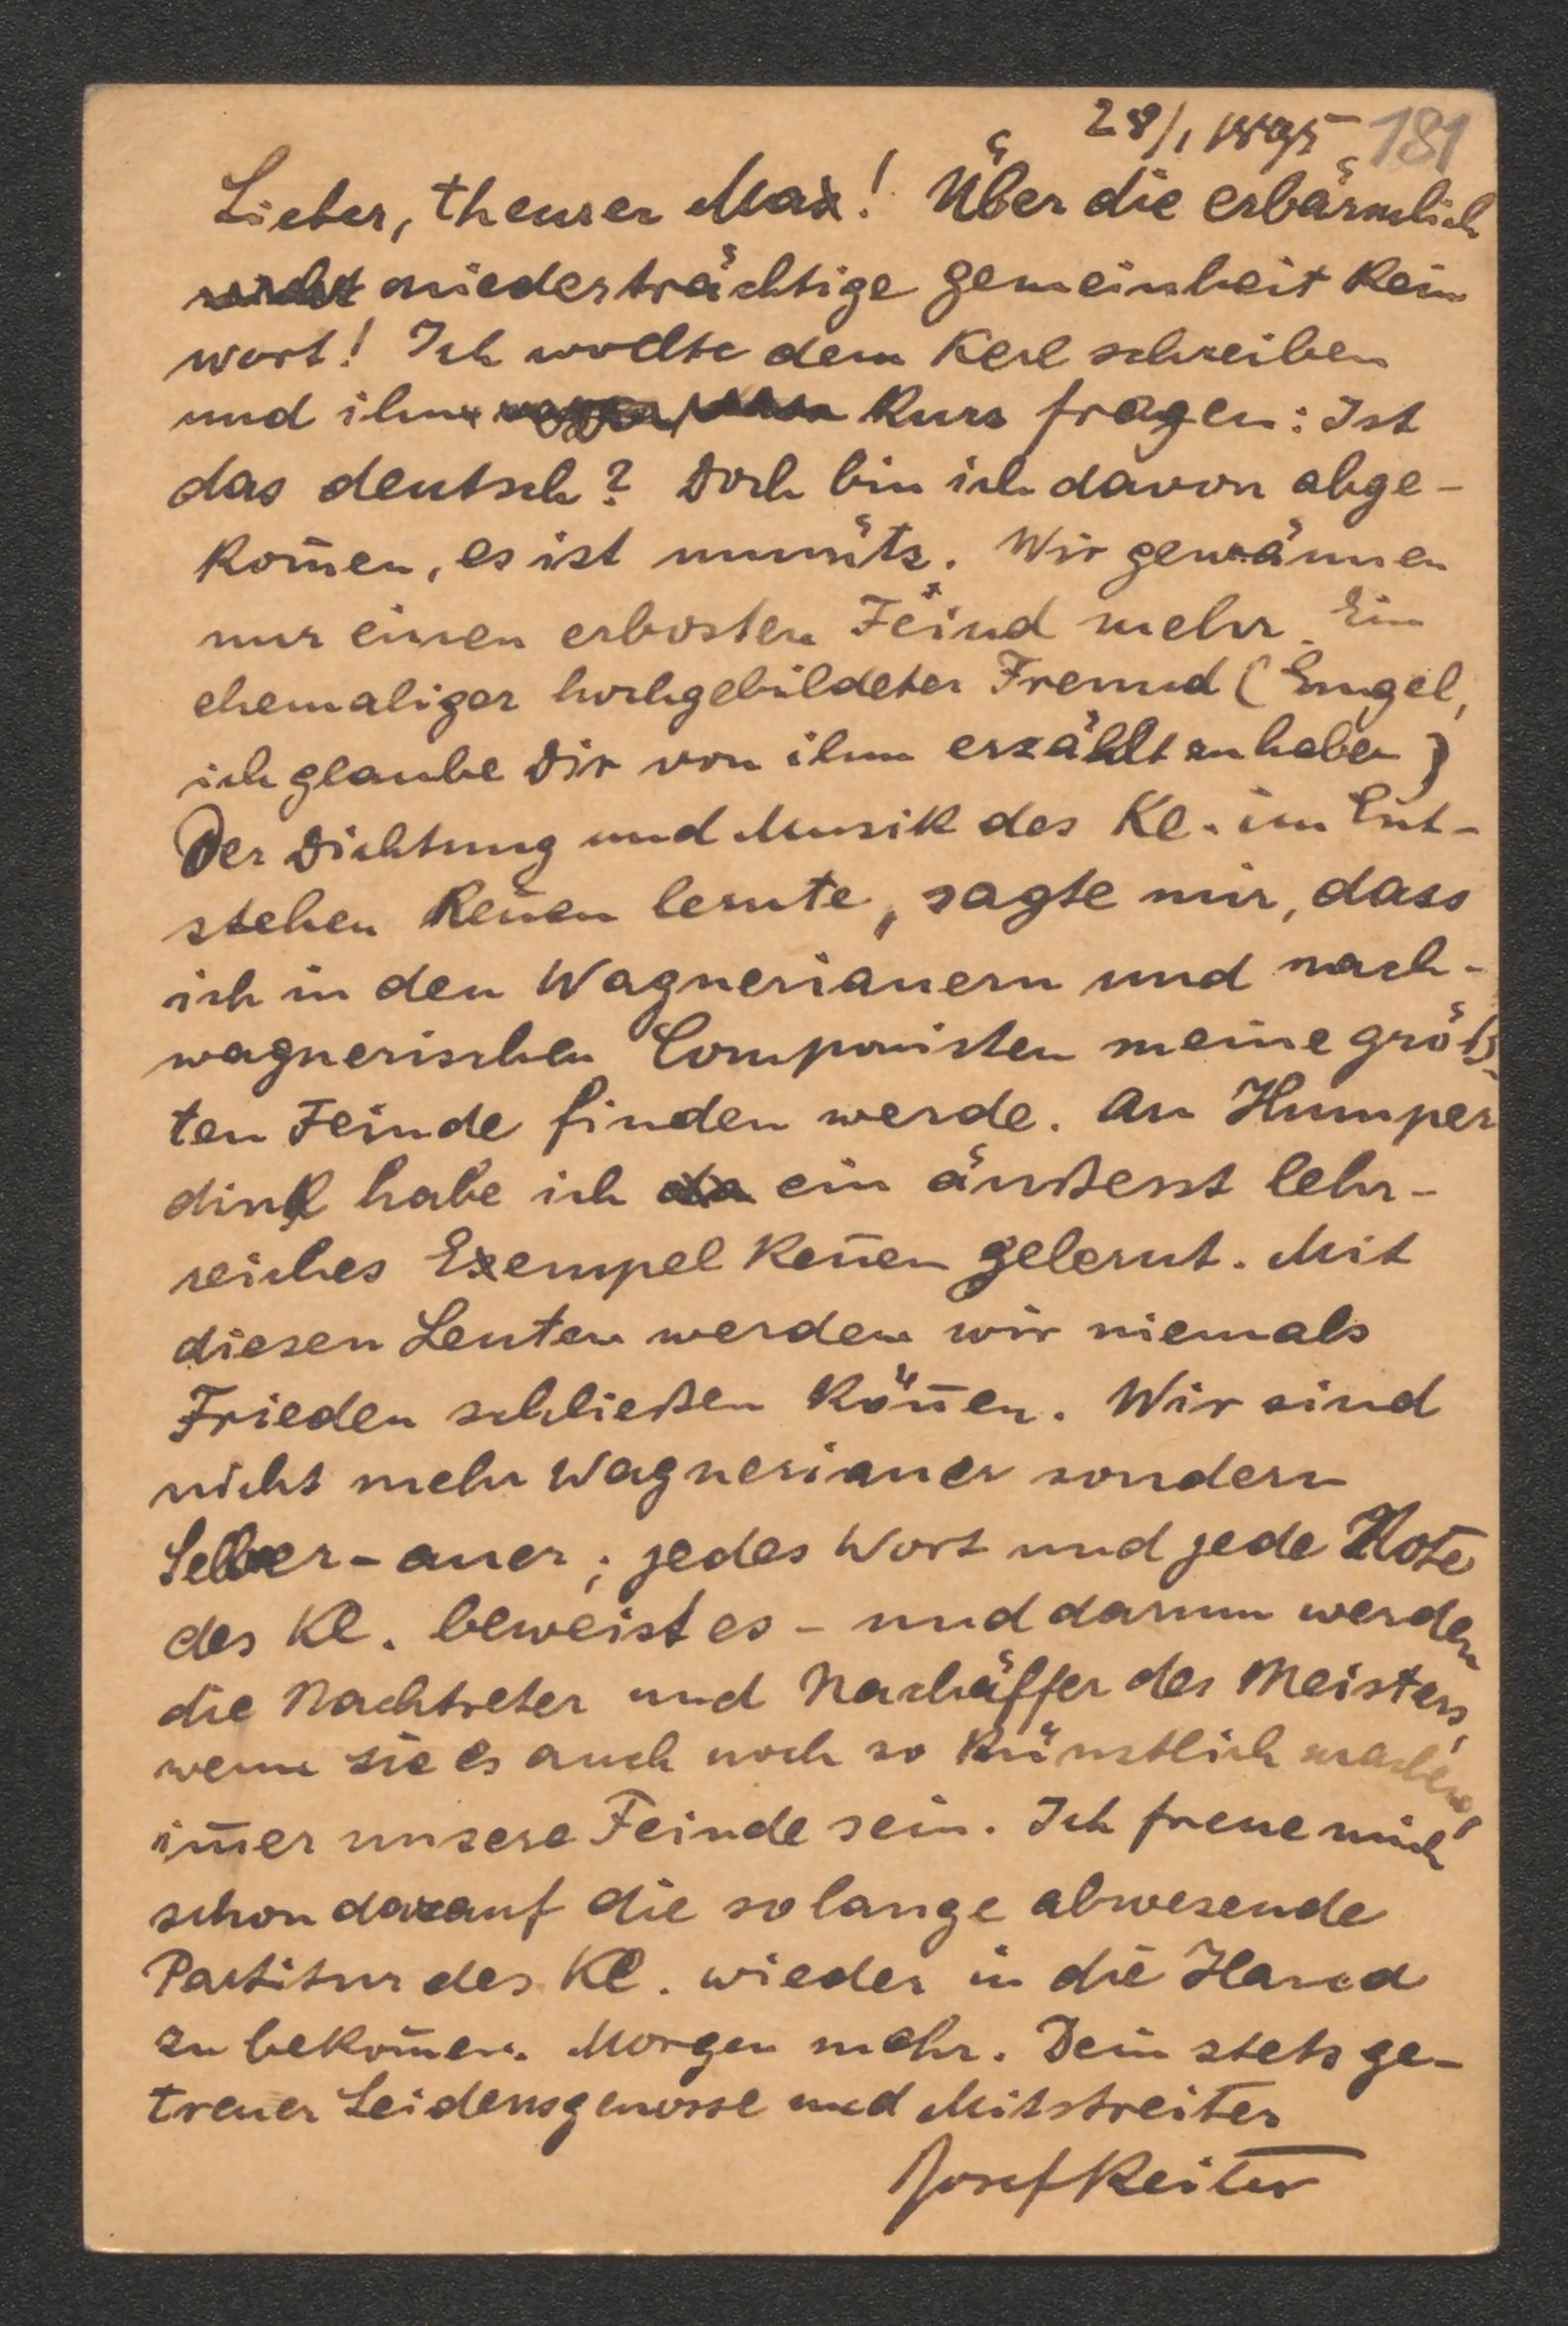 28/1 1895 181
Lieber, theurer Max! Über die erbärmlich
niederträchtige Gemeinheit kein
Wort! Ich wollte dem Kerl schreiben
und ihm kurz fragen: Ist
das deutsch? Doch bin ich davon abge-
kom̄en, es ist unnütz. Wir gewännen
nur einen erbosten Feind mehr. Ein
ehemaliger hochgebildeter Freund (Engel,
ich glaube Dir von ihm erzählt zu haben)
Der Dichtung und Musik des Kl. im Ent-
stehen ken̄en lernte, sagte mir, dass
ich in den Wagnerianern und nach-
wagnerischen Componisten meine größ-
ten Feinde finden werde. An Humper
dink habe ich ein äußerst lehr-
reiches Exempel ken̄en gelernt. Mit
diesen Leuten werden wir niemals
Frieden schließen kön̄en. Wir sind
nicht mehr Wagnerianer sondern
Selber-aner; jedes Wort und jede Note
des Kl. beweist es – und darum werden
die Nachtreter und Nachäffer des Meisters,
wenn sie es auch noch so künstlich machen,
im̄er unsere Feinde sein. Ich freue mich
schon darauf die so lange abwesende
Partitur des Kl. wieder in die Hand
zu bekom̄en. Morgen mehr. Dein stets ge-
treuer Leidensgenosse und Mitstreiter
Josef Reiter